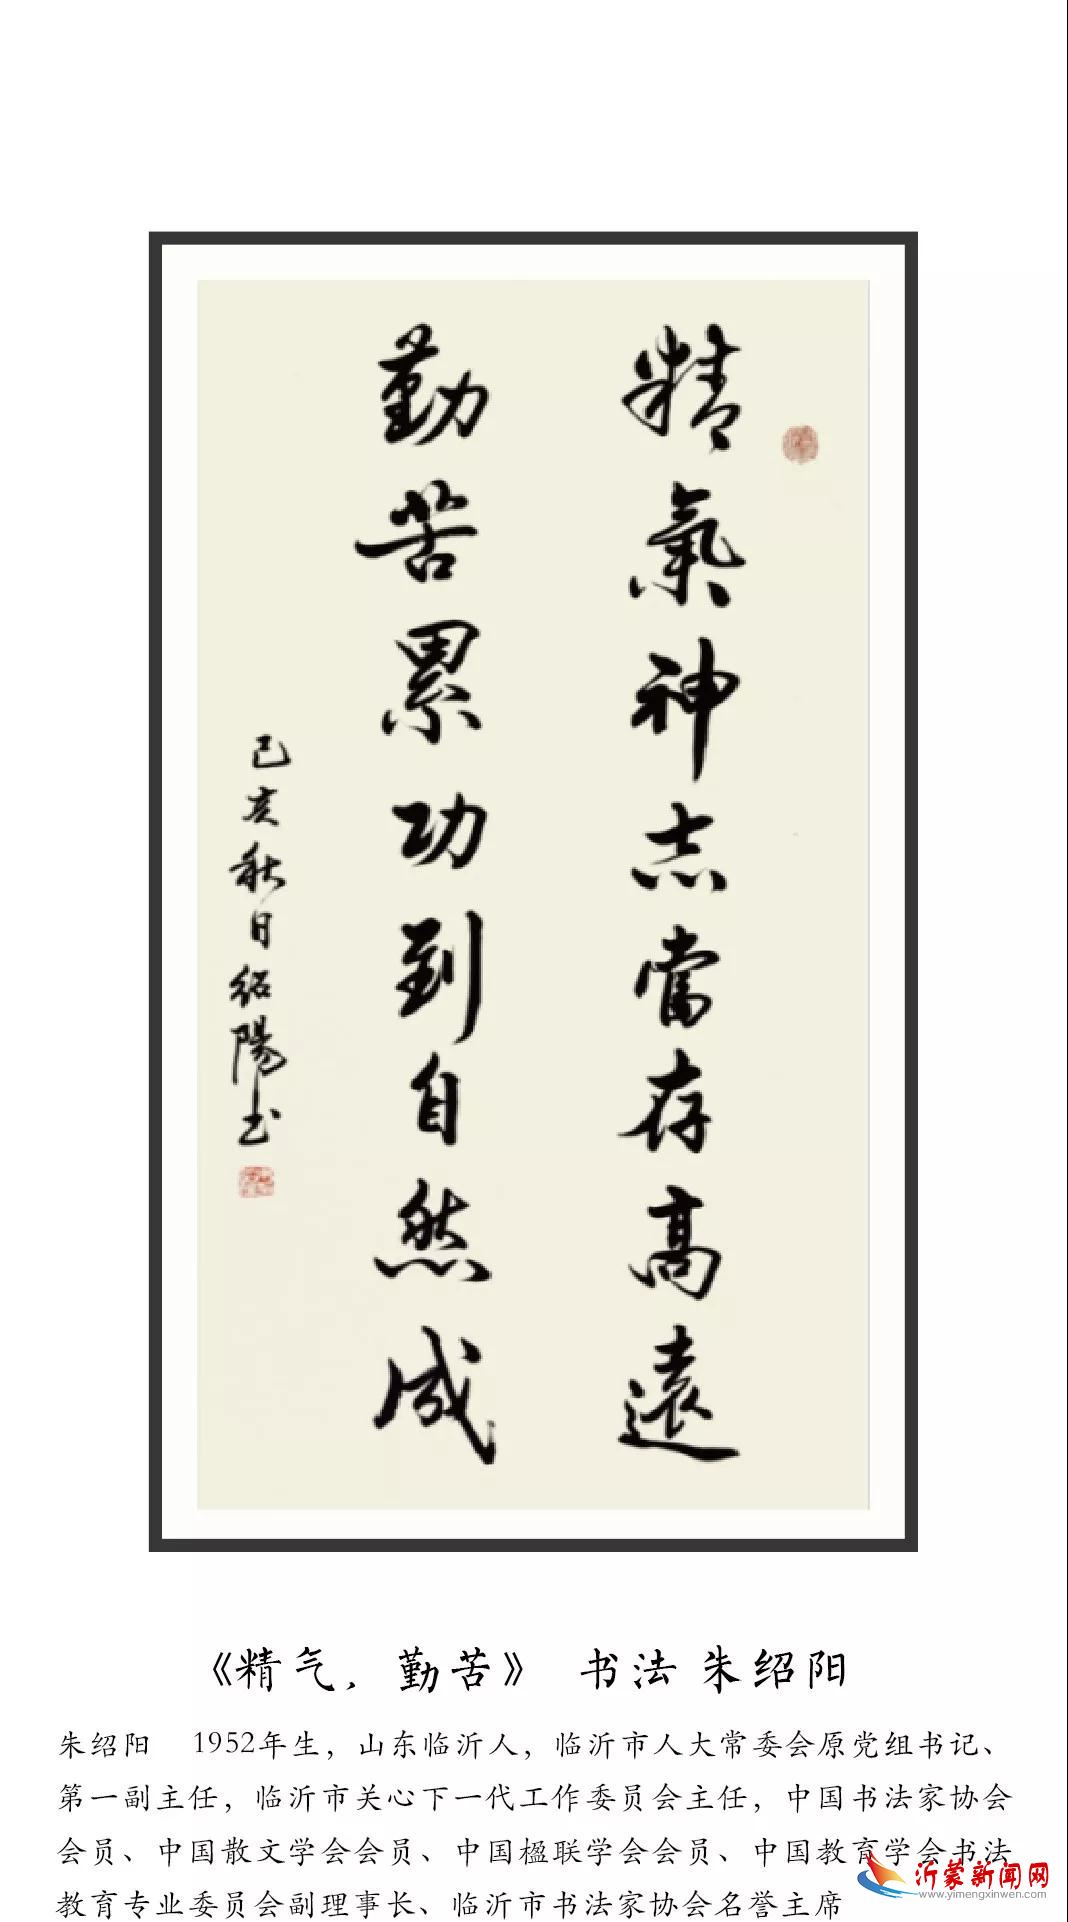 精氣神志當存高遠
勤苦累功到自然成
己亥秋日紹陽书
《精气，勤苦》 书法 朱绍阳
朱绍阳 1952年生，山东临沂人，临沂市人大常委会原党组书记、
第一副主任，临沂市关心下一代工作委员会主任，中国书法家协会
会员、中国散文学会会员、中国楹联学会会员、中国教育学会书法
教育专业委员会副理事长、临沂市书法家协会名誉主席
沂蒙新闻网
www.yimengxinwen.com